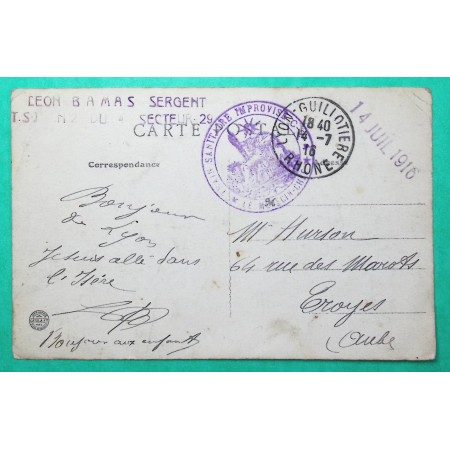 LEON BAMAS SERGENT
T.S. SECTEUR 29
CARTE POSTALE
TRAIN SANITAIRE IMPROVISÉ
LYON-GUILLOTIERE
18 40
14 -7
16
RHONE
14 JUIL 1916
Correspondance
Bonjour
de Lyon
Je suis allé dans
l'Isère
Bonjour aux enfants
Mr Hurson
64 rue des Marots
Troyes
Aube